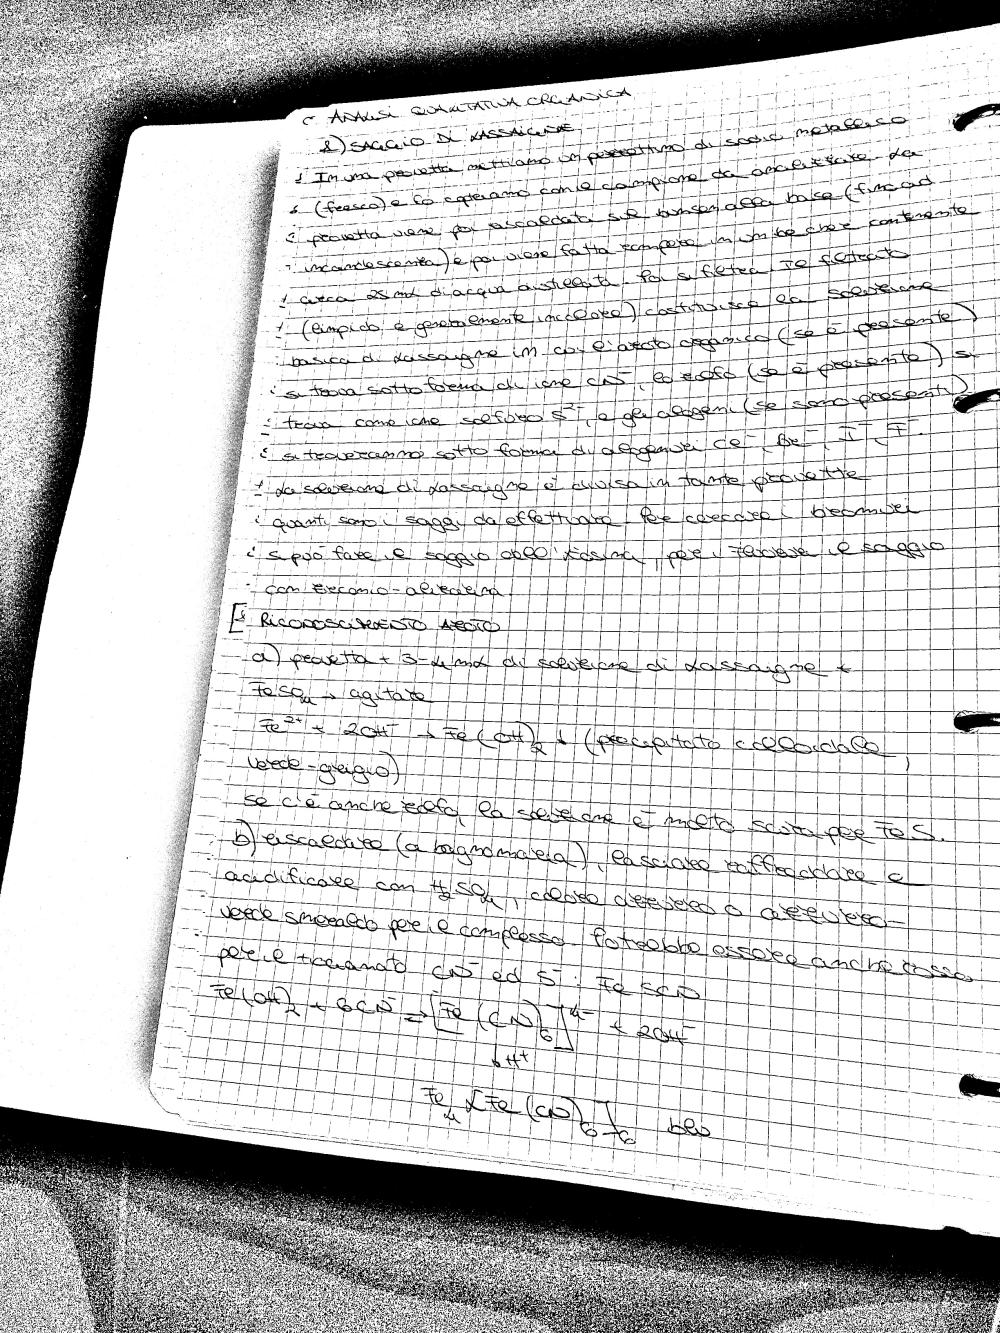 ANALISI QUALITATIVA ORGANICA
2) SAGGIO DI LASSAIGNE
In una provetta mettiamo un pezzettino di sodio metallico
(fresco) e lo copriamo con il campione da analizzare. La
provetta viene poi riscaldata sul bunsen alla base (fino ad
incandescenza) e poi viene fatta rompere in un becher contenente
circa 25 ml di acqua distillata. Poi si filtra. Il filtrato
(limpido e generalmente incolore) costituisce la soluzione
basica di Lassaigne in cui l'azoto organico (se è presente)
si trova sotto forma di ione CN⁻, lo zolfo (se è presente) si
trova come ione solfuro S²⁻, e gli alogeni (se sono presenti)
si troveranno sotto forma di alogenuri Cl⁻, Br⁻, I⁻, F⁻.
La soluzione di Lassaigne è divisa in tante provette
quanti sono i saggi da effettuare. Per cercare i bromuri
si può fare il saggio dell'eosina, per i fluoruri il saggio
con zirconio-alizarina.
RICONOSCIMENTO AZOTO
a) provetta + 3-4 ml di soluzione di Lassaigne +
FeSO₄ → agitare
Fe²⁺ + 2OH⁻ → Fe(OH)₂ ↓ (precipitato colloidale,
verde-grigio)
se c'è anche zolfo, la soluzione è molto scura per FeS.
b) riscaldare (a bagnomaria), lasciare raffreddare e
acidificare con H₂SO₄, colore azzurro o azzurro-
verde smeraldo per il complesso. Potrebbe essere anche rosso
per il tiocianato CN⁻ ed S⁻: FeSCN
Fe(OH)₂ + 6CN⁻ ⇌ [Fe(CN)₆]⁴⁻ + 2OH⁻
↓H⁺
Fe₄[Fe(CN)₆]₆ blu